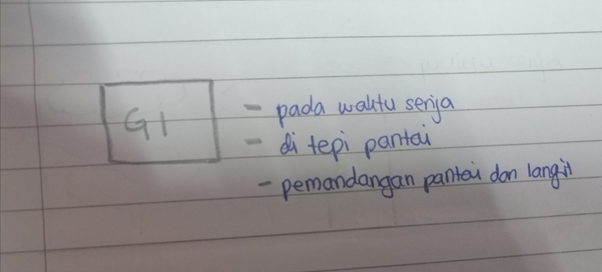 G1
- pada waktu senja
- di tepi pantai
- pemandangan pantai dan langit